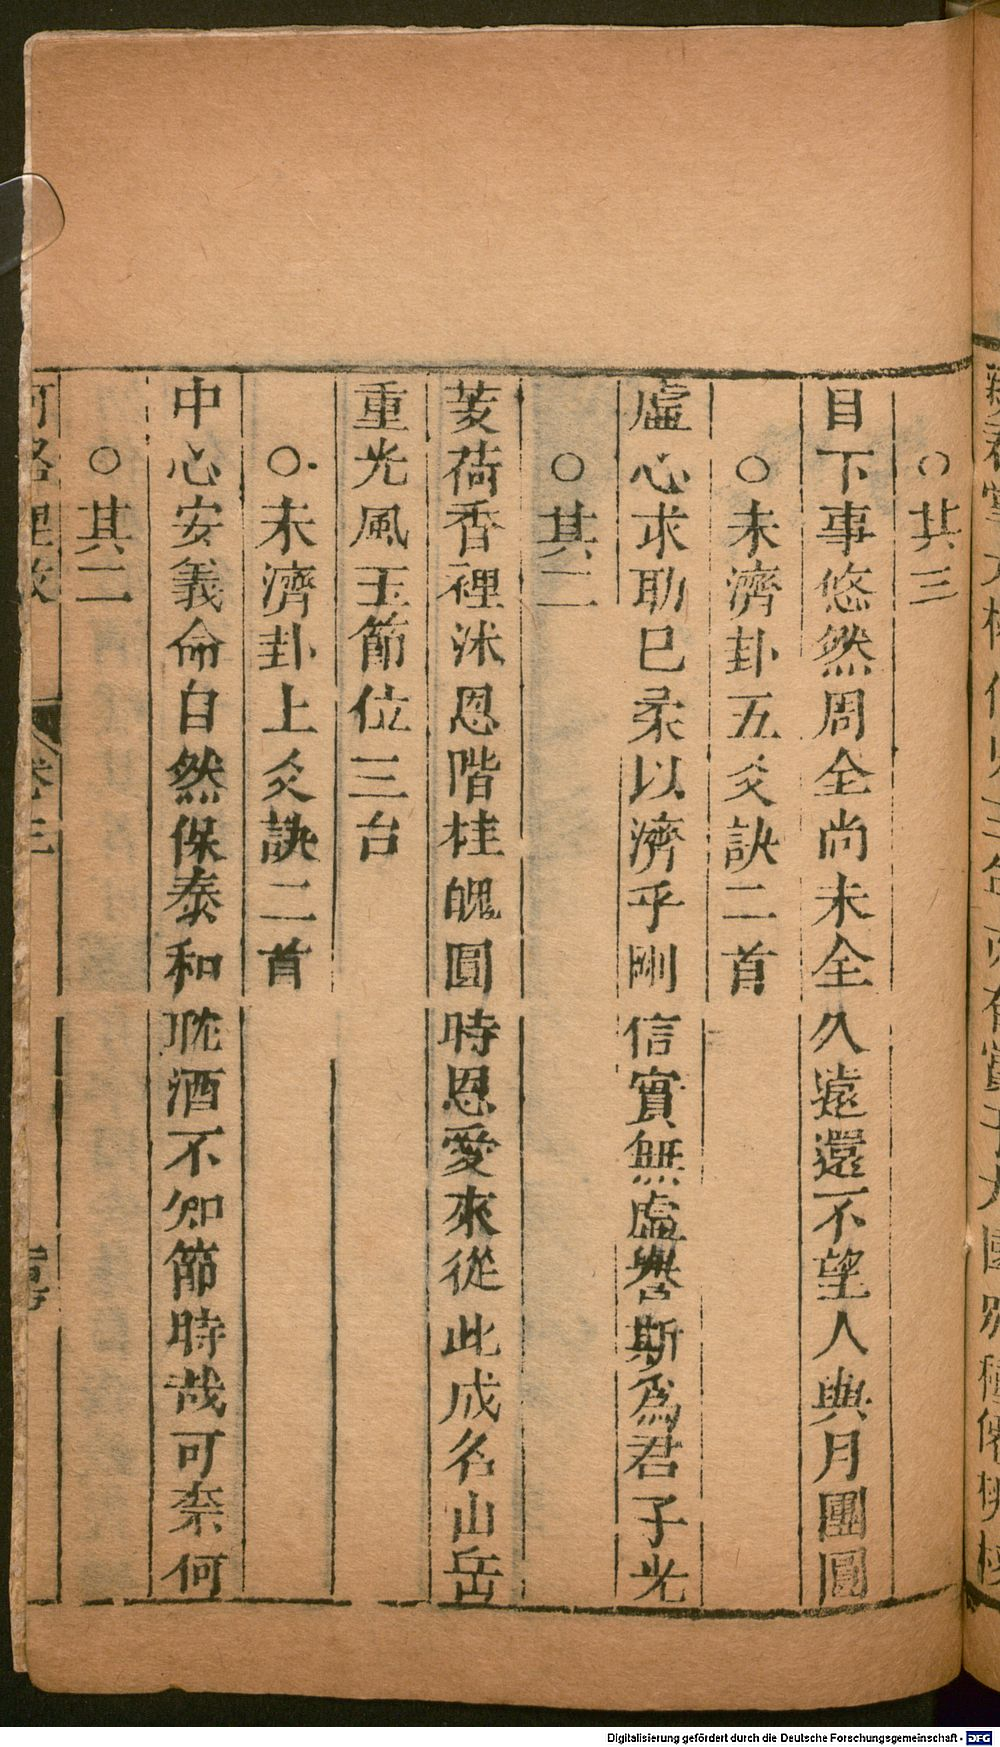 ○其三
目下事悠然周全尚未全久遠還不望人與月團圓
○未濟卦五爻訣二首
虛心求助巳柔以濟乎剛信實無虛譽斯為君子光
○其二
菱荷香裡沐恩階桂魄圓時恩愛來從此成名山岳
重光風玉節位三台
○未濟卦上爻訣二首
中心安義命自然保泰和耽酒不知節時哉可奈何
○其二
卷三
Digitalisierung gefördert durch die Deutsche Forschungsgemeinschaft - DFG